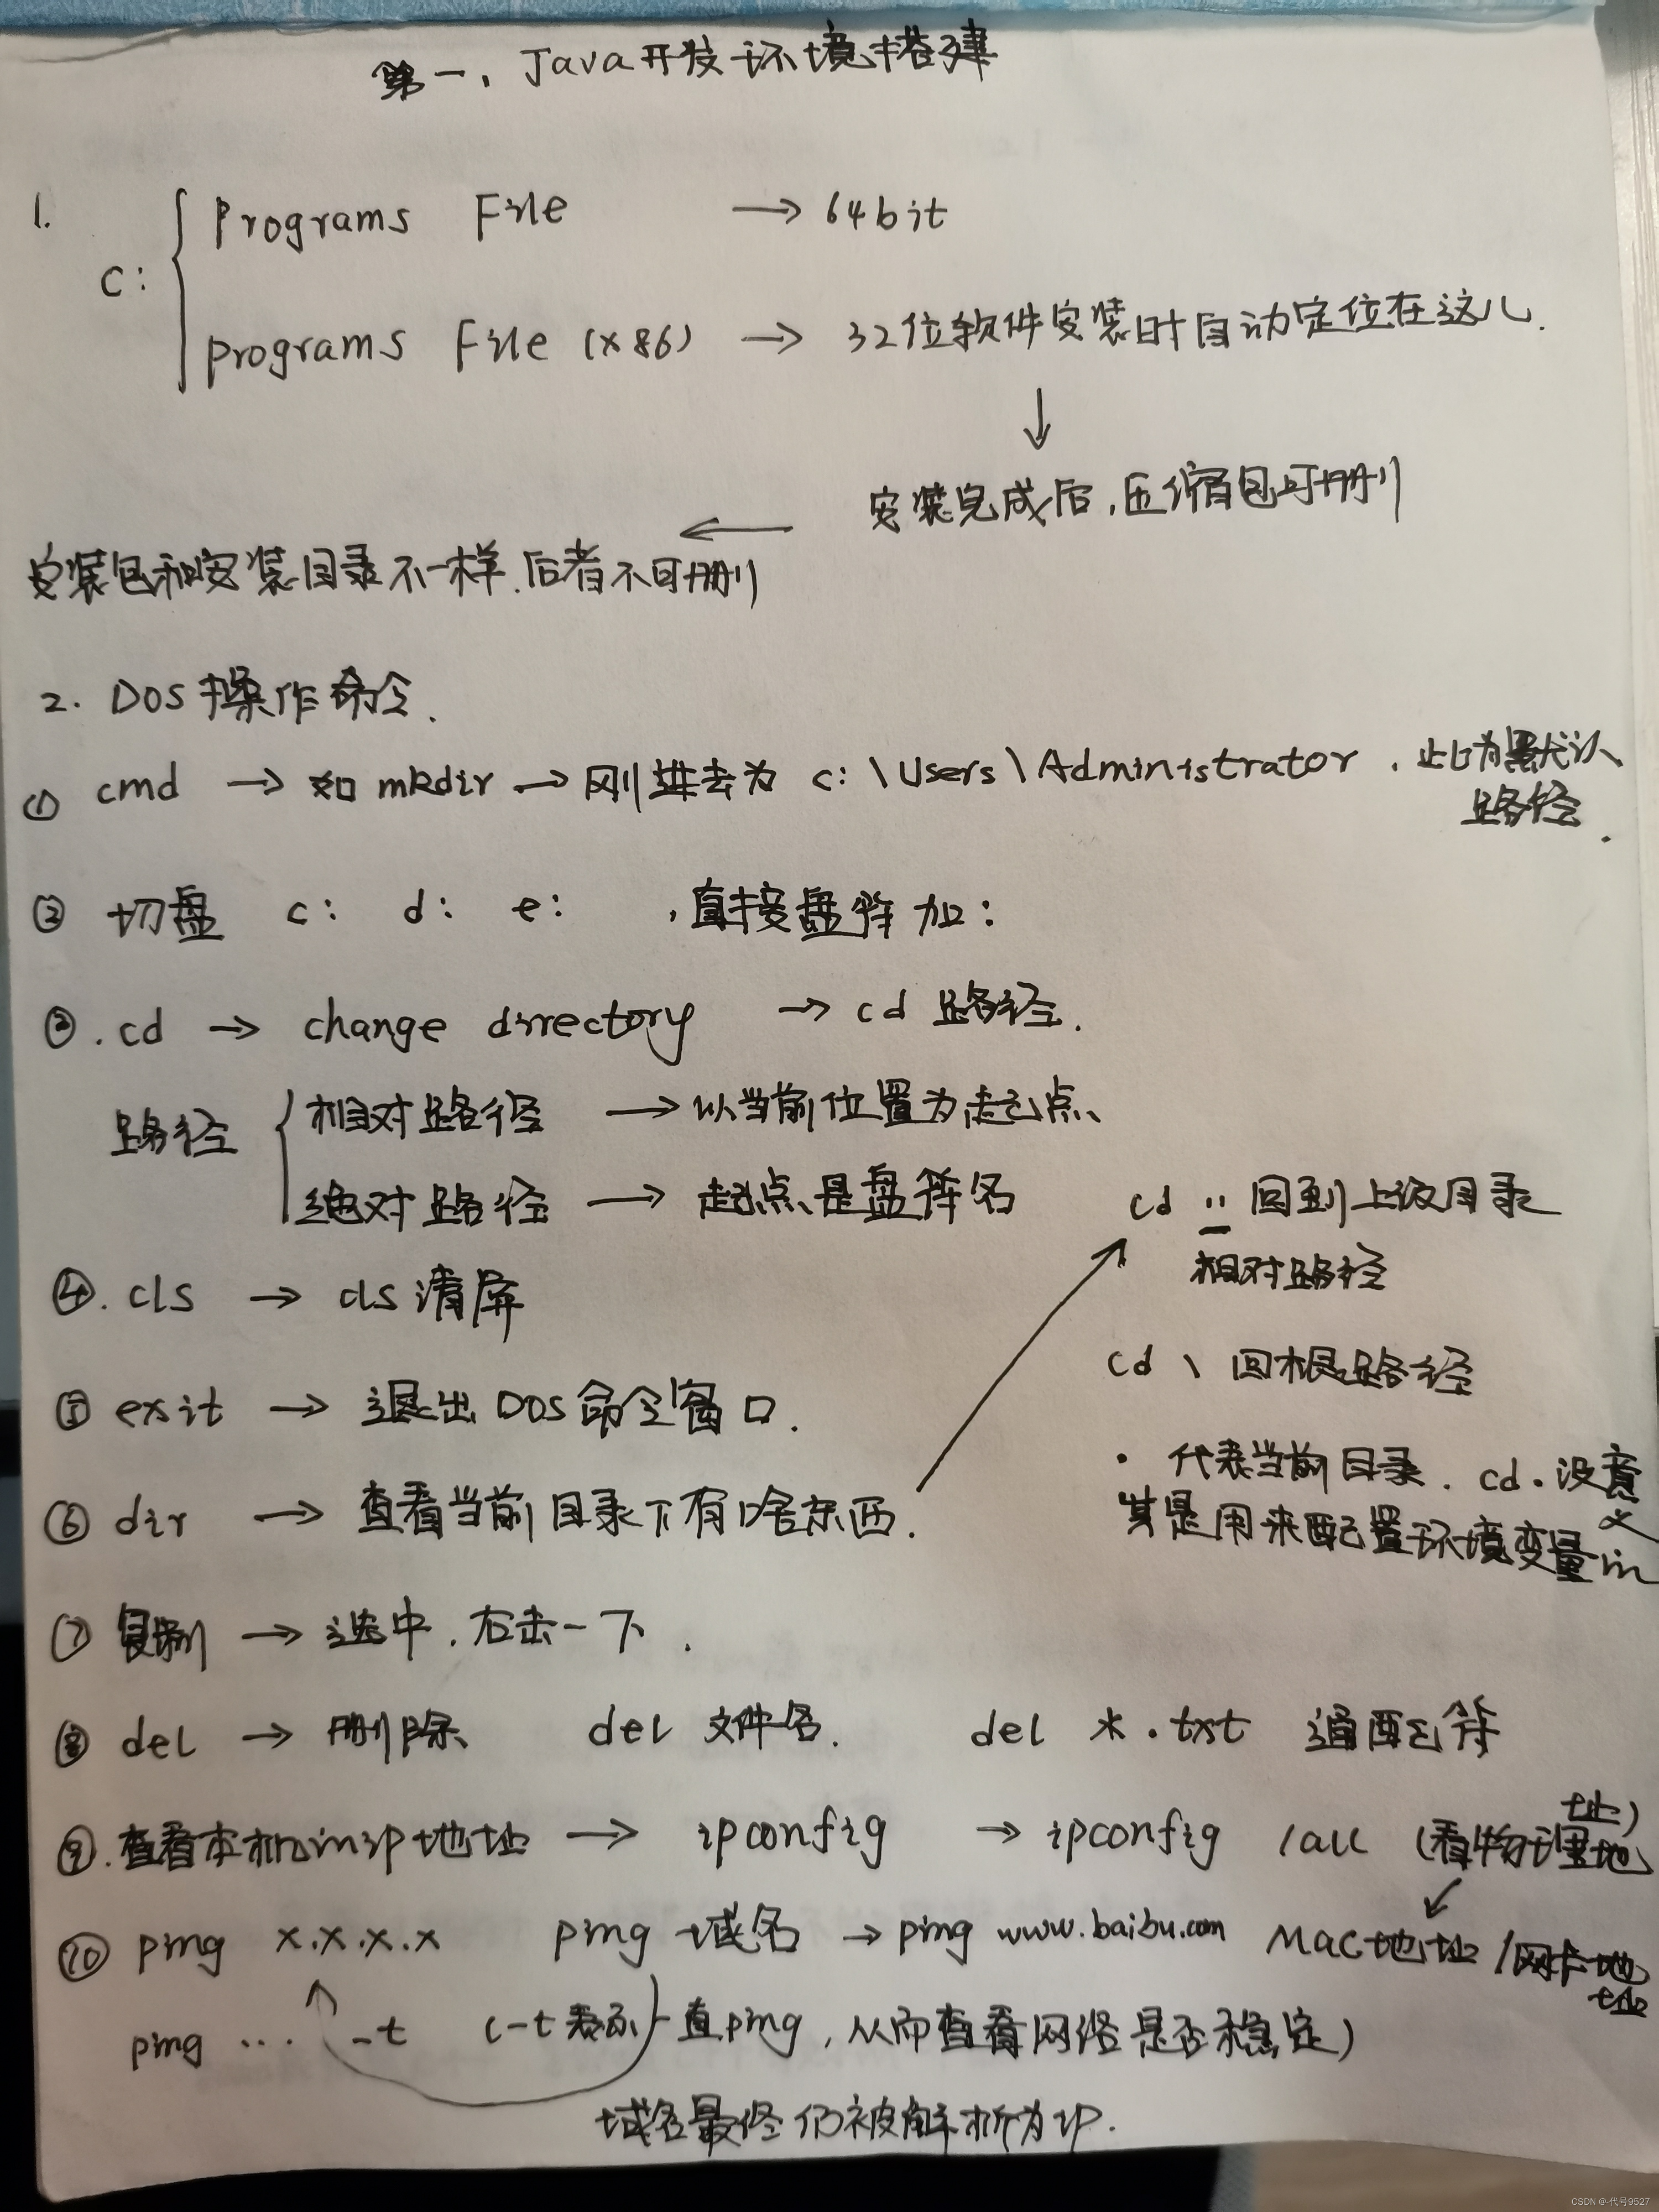 第一、Java开发环境搭建
1.
C:
Programs File → 64bit
Programs File (x86) → 32位软件安装时自动定位在这儿.
↓
安装完成后,压缩包可删
←
安装包和安装目录不一样.后者不可删
2. DOS操作命令.
① cmd → 如 mkdir → 刚进去为 c:\Users\Administrator,此为默认
路径.
② 切盘 c: d: e: ,直接盘符加:
③. cd → change directory → cd 路径.
路径
相对路径 → 以当前位置为起点
绝对路径 → 起点是盘符名
cd .. 回到上级目录
相对路径
④. cls → cls 清屏
cd \ 回根路径
⑤ exit → 退出DOS命令窗口.
· 代表当前目录. cd . 没意
义
其是用来配置环境变量in
⑥ dir → 查看当前目录下有啥东西.
⑦ 复制 → 选中.右击一下.
⑧ del → 删除 del 文件名. del *.txt 通配符
⑨. 查看本机in ip地址 → ipconfig → ipconfig /all (看物理地
址)
⑩ ping x.x.x.x ping 域名 → ping www.baibu.com MAC地址/网卡地
址
ping ... -t (-t 表示一直ping,从而查看网络是否稳定)
域名最终仍被解析为IP.
CSDN @-代号9527